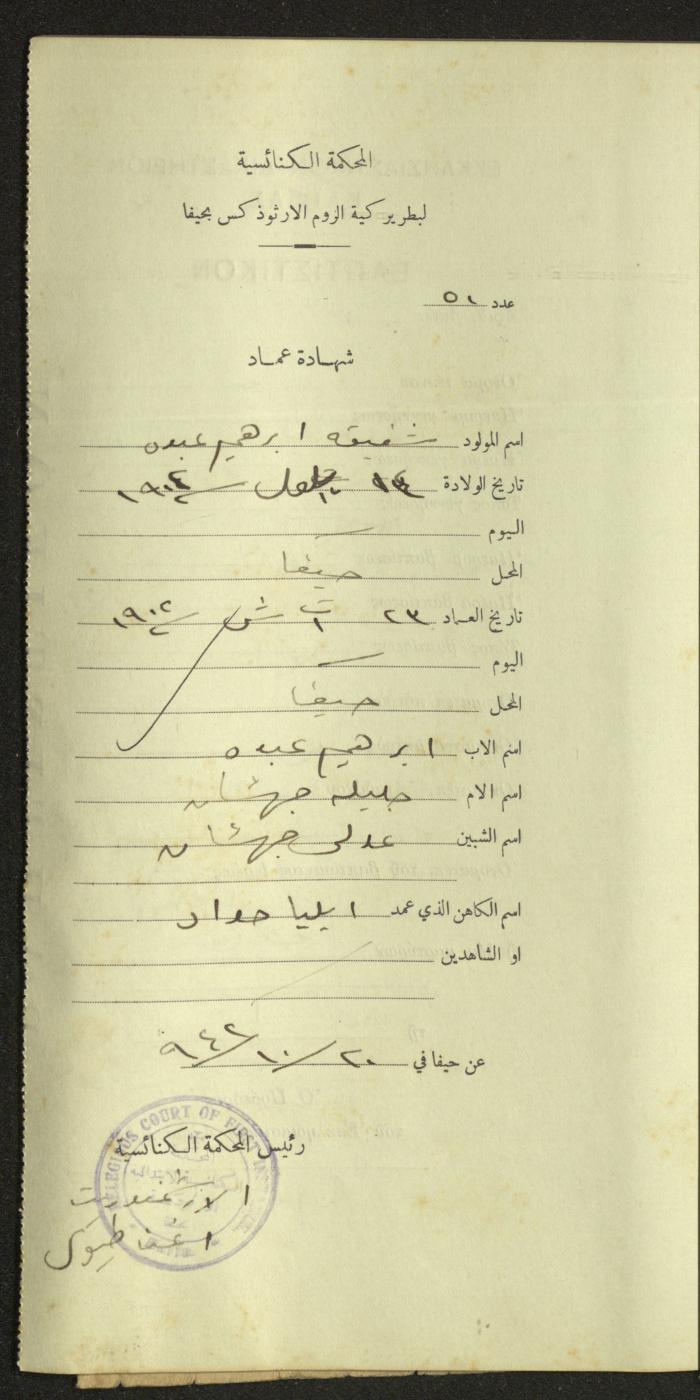 المحكمة الكنائسية
لبطريركية الروم الارثوذكس بحيفا
عدد ٥١
شهادة عماد
اسم المولود شفيقه ابرهيم عبده
تاريخ الولادة
اليوم
المحل حيفا
تاريخ العماد ٢٣ ت ١ ش ١٩٠٢
اليوم
المحل حيفا
اسم الاب ابرهيم عبده
اسم الام جليله جهشان
اسم الشبين عدلى جهشان
اسم الكاهن الذي عمد ايليا حداد
او الشاهدين
عن حيفا في ٢٠/١٠/٩٤٢
رئيس المحكمة الكنائسية
COURT OF FIRST